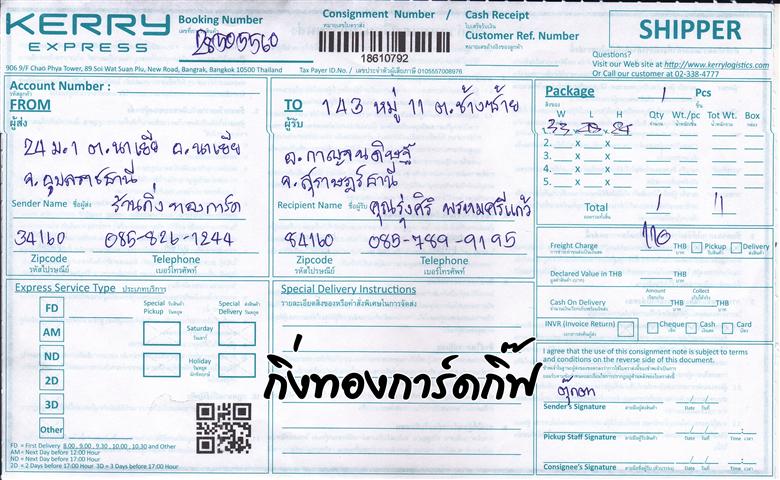 KERRY
EXPRESS
Booking Number
Consignment Number /
Cash Receipt
หมายเลขใบตราส่ง
ใบเสร็จรับเงิน
Customer Ref. Number
หมายเลขอ้างอิงของลูกค้า
18610792
SHIPPER
Questions?
Visit our Web site at http://www.kerrylogistics.com
Or Call our customer at 02-338-4777
906 9/F Chao Phya Tower, 89 Soi Wat Suan Plu, New Road, Bangrak, Bangkok 10500 Thailand
Tax Payer ID.No. / เลขประจำตัวผู้เสียภาษี 0105557008976
Account Number :
รหัสลูกค้า
FROM
ผู้ส่ง
24 ม.1 ต.นาเยีย อ.นาเยีย
จ.อุบลราชธานี
Sender Name ชื่อผู้ส่ง ร้านกิ่งทองการ์ด
34160 085-826-1244
Zipcode Telephone
รหัสไปรษณีย์ เบอร์โทรศัพท์
TO 143 หมู่ 11 ต.ช้างซ้าย
ผู้รับ
อ.กาญจนดิษฐ์
จ.สุราษฎร์ธานี
Recipient Name ชื่อผู้รับ คุณรุ่งศิริ พรหมศรีแก้ว
84160 085-789-9195
Zipcode Telephone
รหัสไปรษณีย์ เบอร์โทรศัพท์
Package 1 Pcs
สิ่งของ ชิ้น
W L H Qty Wt./pc Tot Wt. Box
จำนวน น้ำหนัก/ชิ้น น้ำหนักรวม กล่อง
2. x x
3. x x
4. x x
5. x x
Total 1 11
Freight Charge 110 THB Pickup Delivery
Declared Value in THB THB
Amount Collect
Cash On Delivery THB THB
INVR (Invoice Return) Cheque Cash Card
เช็ค เงินสด บัตร
Express Service Type ประเภทบริการ
Special Pickup
Special Delivery
FD
AM
ND
2D
3D
Other
Saturday
วันเสาร์
Holiday
วันหยุด
FD = First Delivery 8.00, 9.00, 9.30, 10.00, 10.30 and Other
AM = Next Day before 12:00 Hour
ND = Next Day before 17:00 Hour
2D = 2 Days before 17:00 Hour 3D = 3 Days before 17:00 Hour
Special Delivery Instructions
รายละเอียดสิ่งของหรือคำสั่งพิเศษในการจัดส่ง
กิ่งทองการ์ดกิ๊ฟ
I agree that the use of this consignment note is subject to terms
and conditions on the reverse side of this document.
ตุ๊กตา
Sender's Signature ลายมือชื่อผู้ส่งสินค้า Date วันที่
Pickup Staff Signature Date วันที่ Time เวลา
Consignee's Signature Date วันที่ Time เวลา